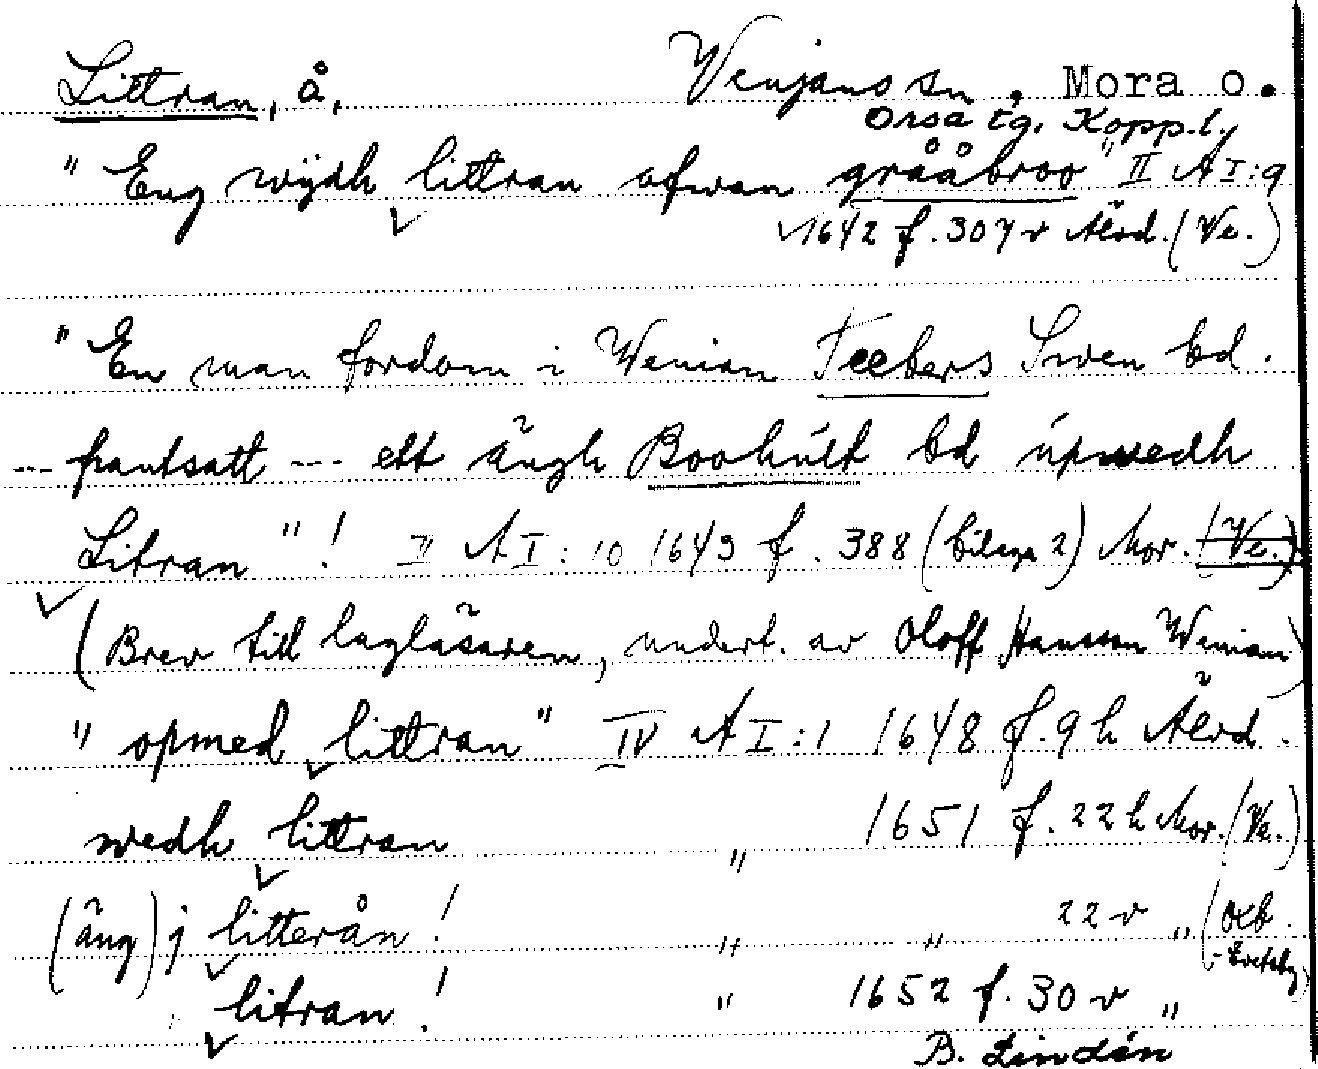 Littran, å, Venjans sn. Mora o.
Orsa tg. Kopp.l.
"Eng wijdh littran ofwan grååbroo" II A I:9
1642 f. 307 v Älvd. (Ve.)
"En man fordom i Wenian Teebers Swen bd.
--- pantsatt --- ett ängh Boohult bd upwedh
Litran"! II A I:10 1643 f. 388 (bilaga 2) Mor. (Ve.)
(Brev till lagläsaren, undert. av Oloff Hansson Wenian)
"opmed littran" IV A I:1 1648 f. 9 h Älvd.
wedh littran " 1651 f. 22 h Mor. (Ve.)
(äng) j litterån! " " 22 v " (
litran! " 1652 f. 30 v "
B. Lindén